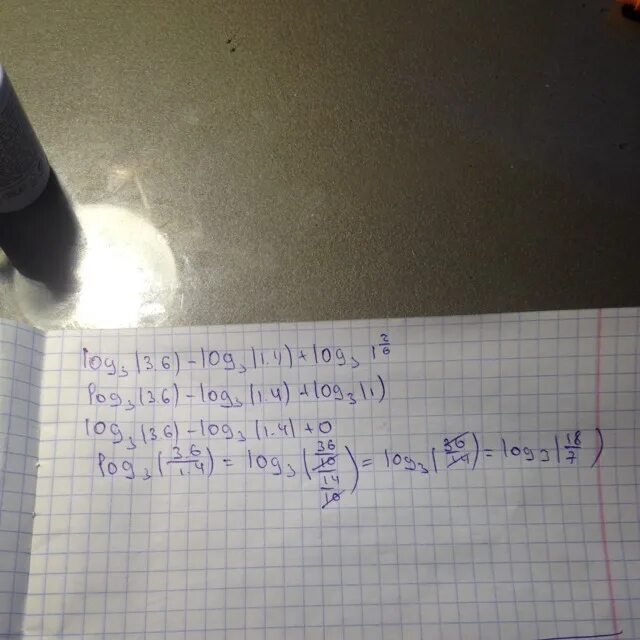 log₃(3.6)-log₃(1.4)+log₃ 1^(2/6)
log₃(3.6)-log₃(1.4)+log₃(1)
log₃(3.6)-log₃(1.4)+0
log₃(3.6/1.4) = log₃((36/10)/(14/10)) = log₃(36/14) = log₃(18/7)